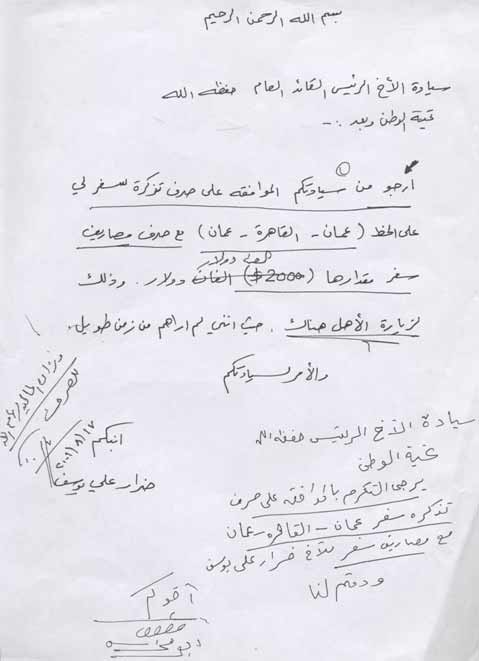 بسم الله الرحمن الرحيم
سيادة الأخ الرئيس القائد العام حفظه الله
تحية الوطن وبعد :-
أرجو من سيادتكم الموافقه على صرف تذكرة سفر لي
على الخط (عمان - القاهرة - عمان) مع صرف مصاريف
الفي دولار
سفر مقدارها (2000$) الفان دولار. وذلك
لزيارة الأهل هناك. حيث انني لم اراهم من زمن طويل.
والأمر لسيادتكم
ابنكم
ضرار علي يوسف
٢٠٠١/٨/١٧
سيادة الأخ الرئيس حفظه الله
تحية الوطن
يرجى التكرم بالموافقه على صرف
تذكره سفر عمان - القاهره - عمان
مع مصاريف سفر للأخ ضرار علي يوسف
ودمتم لنا
أخوكم